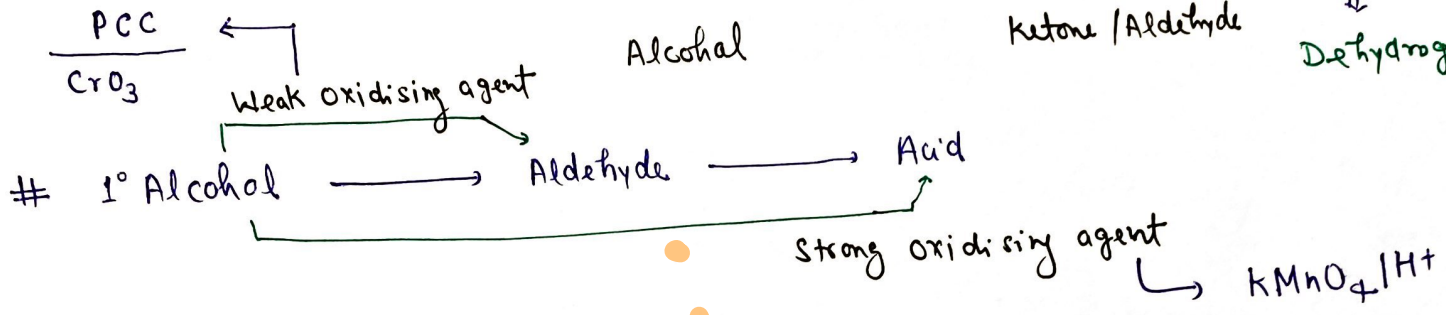 PCC
CrO3
Alcohal
Ketone / Aldehyde
Weak oxidising agent
# 1° Alcohal → Aldehyde → Acid
Strong oxidising agent
KMnO4/H+